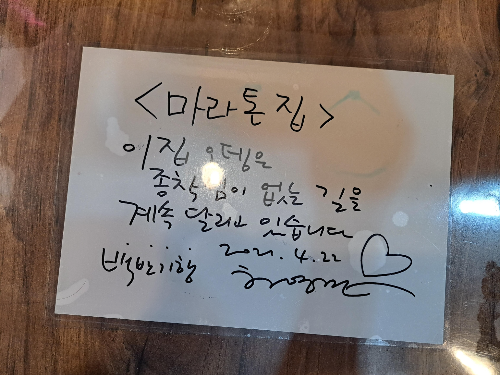 <마라톤집>
이집 오뎅은
종착점이 없는 길을
계속 달리고 있습니다
백반기행 2021.4.22
허영만